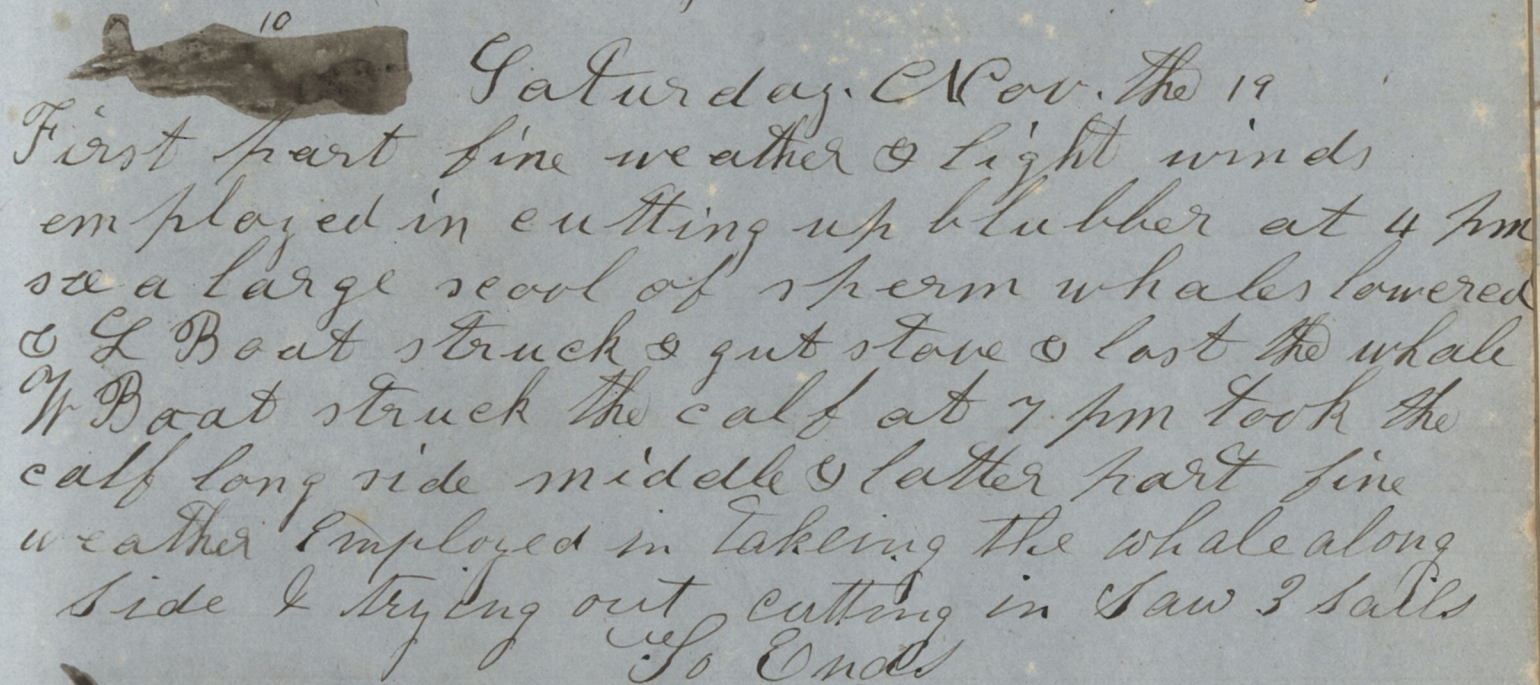 10
Saturday. Nov. the 19
First part fine weather & light winds
employed in cutting up blubber at 4 pm
a large scool of sperm whales lowered
& L Boat struck & gut stove & lost the whale
W Boat struck the calf at 7 pm took the
calf long side middle & latter part fine
weather Employed in takeing the whale along
side & trying out cutting in Saw 3 sails
So Ends